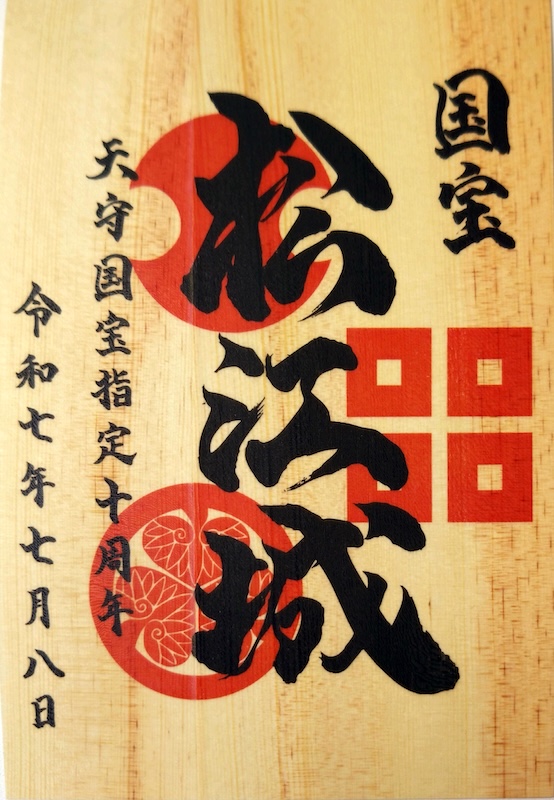 国宝
松江城
天守国宝指定十周年
令和七年七月八日